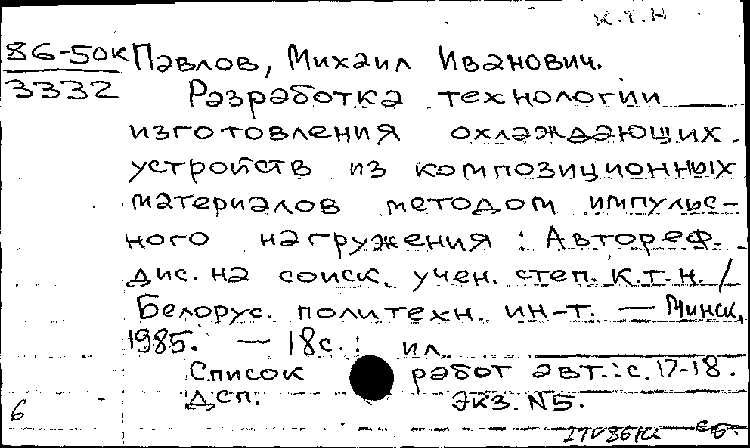 к.т.н
86-50к Павлов, Михаил Иванович.
3332 Разработка технологии
изготовления охлаждающих
устройств из композиционных
материалов методом импульс-
ного нагружения : Автореф.
дис. на соиск. учен. степ. к.т.н. /
Белорус. политехн. ин-т. — Минск,
1985. — 18с. : ил.
Список работ авт.: с. 17-18.
Дсп. Экз. N5.
6